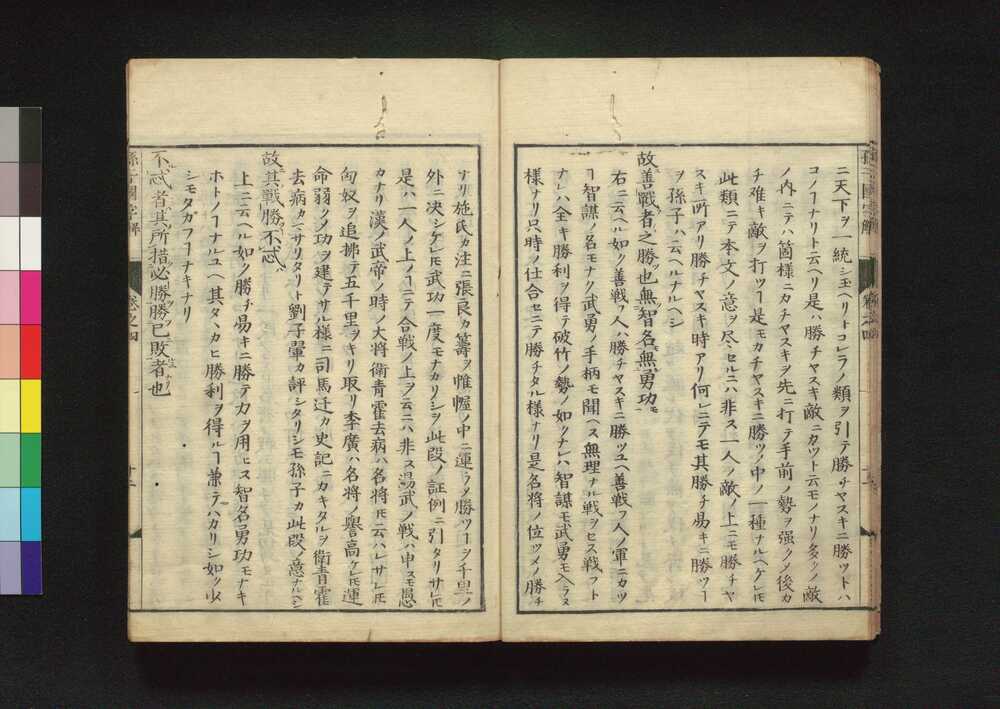 ニ天下ヲ一統シ玉ヘリトコレラノ類ヲ引テ勝チヤスキニ勝ツトハ
コノヿナリト云ヘリ是ハ勝チヤスキ敵ニカツト云モノナリ多クノ敵
ノ内ニテハ箇様ニカチヤスキヲ先ニ打テ手前ノ勢ヲ强クメ後カ
チ难キ敵ヲ打ツヿ是モカチヤスキニ勝ツノ中ノ一種ナルヘケレ𪜈
此類ニテ本文ノ意ヲ尽セルニハ非ス一人ノ敵ノ上ニモ勝チヤ
スキ所アリ勝チヤスキ時アリ何レニテモ其勝チ易キニ勝ツヿ
ヲ孫子ハ云ヘルナルヘシ
故善戰者之勝也無智名無勇功
右ニ云ヘル如ク善戦フ人ハ勝チヤスキニ勝ツユヘ善戦フ人ノ軍ニカツ
ヿ智謀ノ名モナク武勇ノ手柄モ聞ヘス無理ナル戦ヲセス戦フト
ナレハ全キ勝利ヲ得テ破竹ノ勢ノ如クナレハ智謀モ武勇モ入ラヌ
様ナリ只時ノ仕合セニテ勝チタル様ナリ是名将ノ位ツメノ勝チ
ナリ施氏カ注ニ張良カ籌ヲ帷幄ノ中ニ運ラメ勝ツヿヲ千里ノ
外ニ决シケレ𪜈武功一度モナカリシヲ此段ノ証例ニ引タリサレ𪜈
是ハ一人ノ上ノヿニテ合戦ノ上ヲ云ニハ非ス湯武ノ戦ハ申スモ愚
カナリ漢ノ武帝ノ時ノ大将衛青霍去病ハ名将𪜈云ハレサレ𪜈
匈奴ヲ追拂テ五千里ヲキリ取リ李廣ハ名将ノ譽高ケレ𪜈運
命弱クノ功ヲ建テサル様ニ司馬迁カ史記ニカキタルヲ衛青霍
去病カマサリタリト劉子翬カ評シタリシモ孫子カ此段ノ意ナルヘシ
故其戰勝不忒
上ニ云ヘル如ク勝チ易キニ勝テ力ヲ用ヒス智名勇功モナキ
ホトノヿナルユヘ其タヽカヒ勝利ヲ得ルヿ兼テハカリシ如ク少
シモタガフヿナキナリ
不忒者其所措必勝勝已敗者也
孫子國字解 卷之四